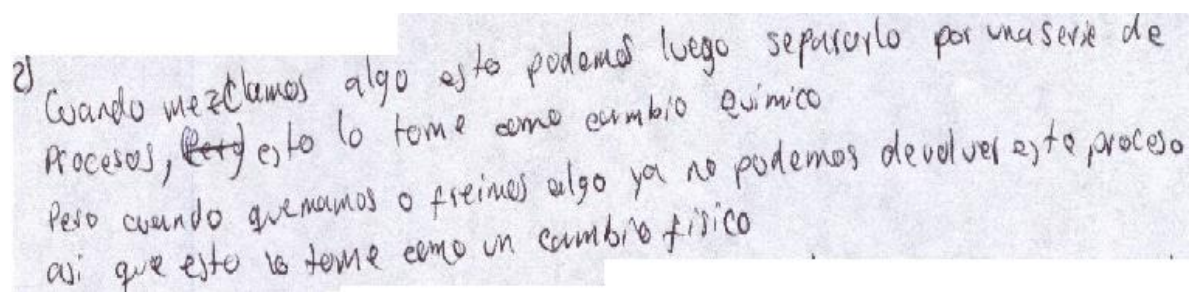 2) Cuando mezclamos algo esto podemos luego separarlo por una serie de
Procesos, esto lo tome como cambio Quimico
Pero cuando quemamos o freimos algo ya no podemos devolver este proceso
asi que esto lo tome como un cambio fisico